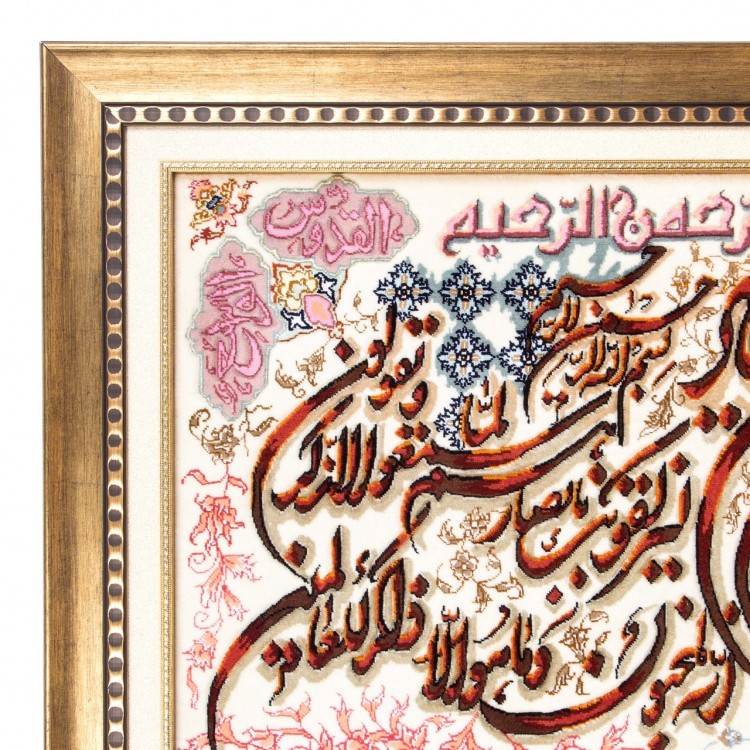 رحمن الرحیم
القدّوس
بسم الله الرحمن الرحیم
لیزلقونک بابصارهم
لمّا سمعوا الذکر و یقولون
انه لمجنون و ما هو الّا ذکر للعالمین